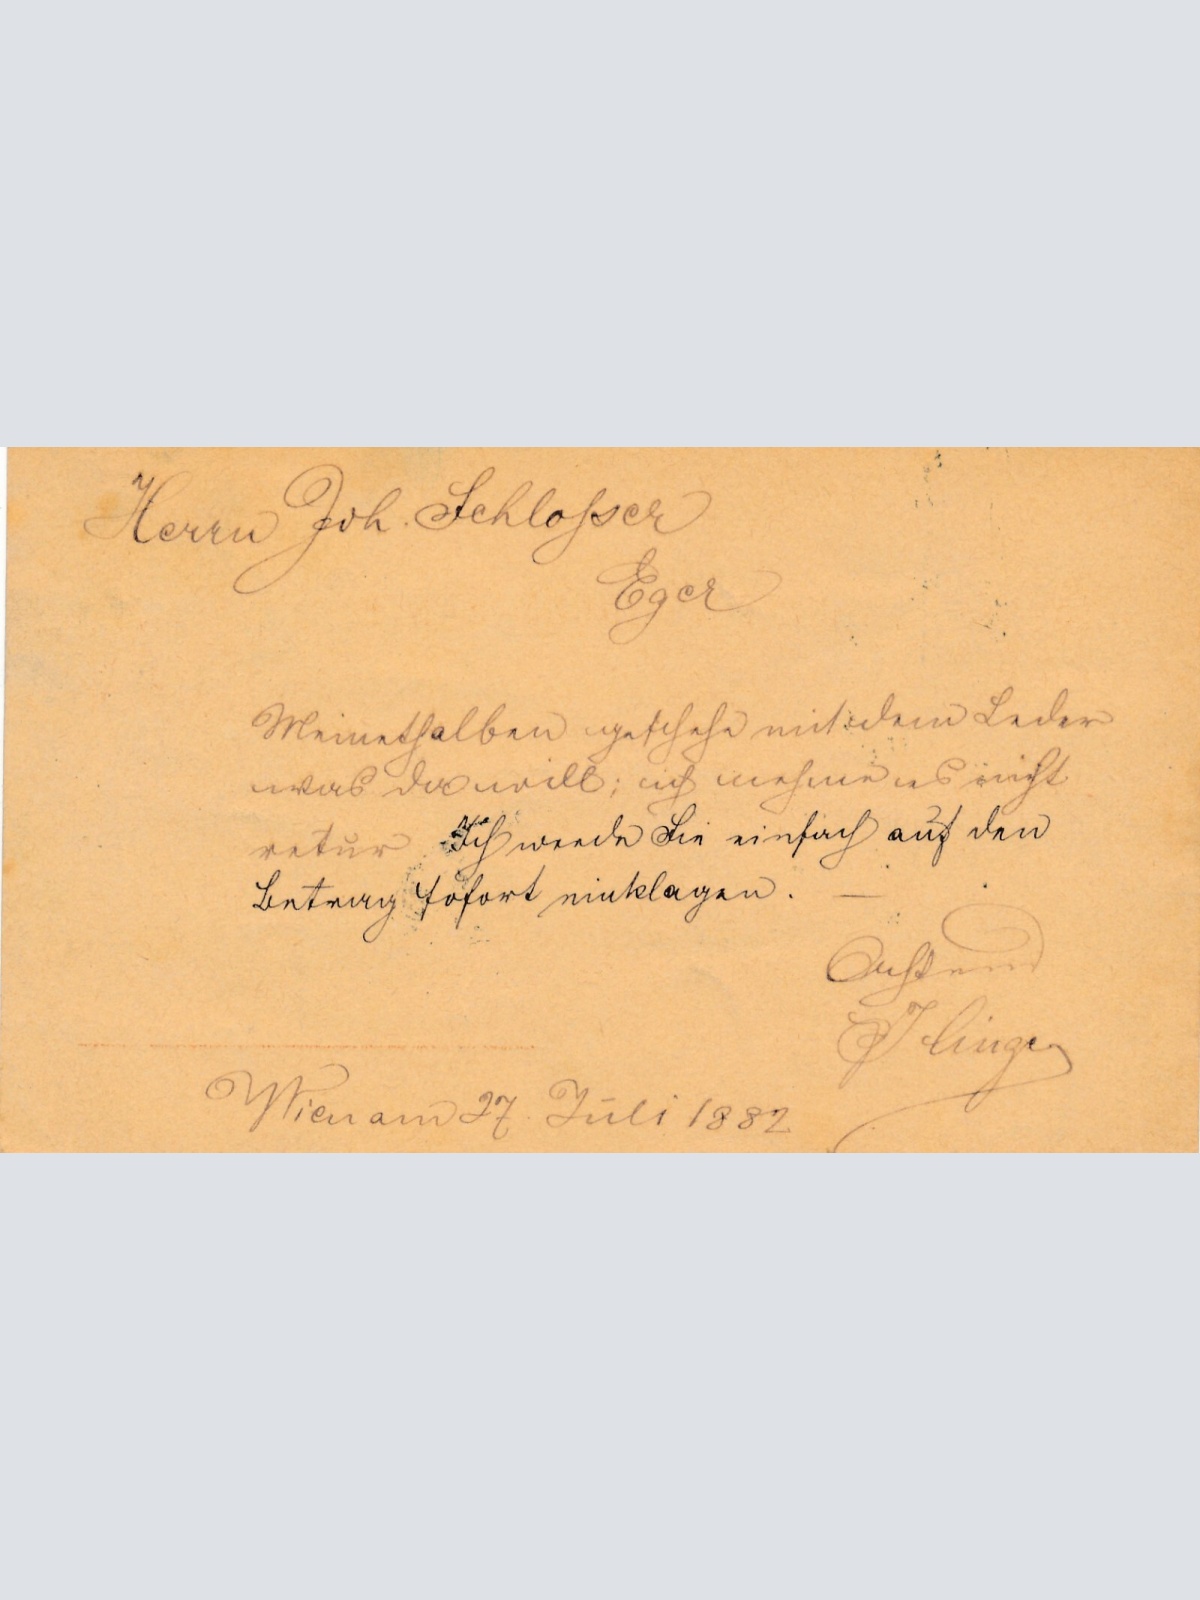 Herrn Joh. Schloßser
Eger
Meinethalben geschehe mit dem Leder
was da will; ich nehme es nicht
retur Ich werde Sie einfach auf den
Betrag sofort einklagen. —
Achtend
Wien am 27. Juli 1882